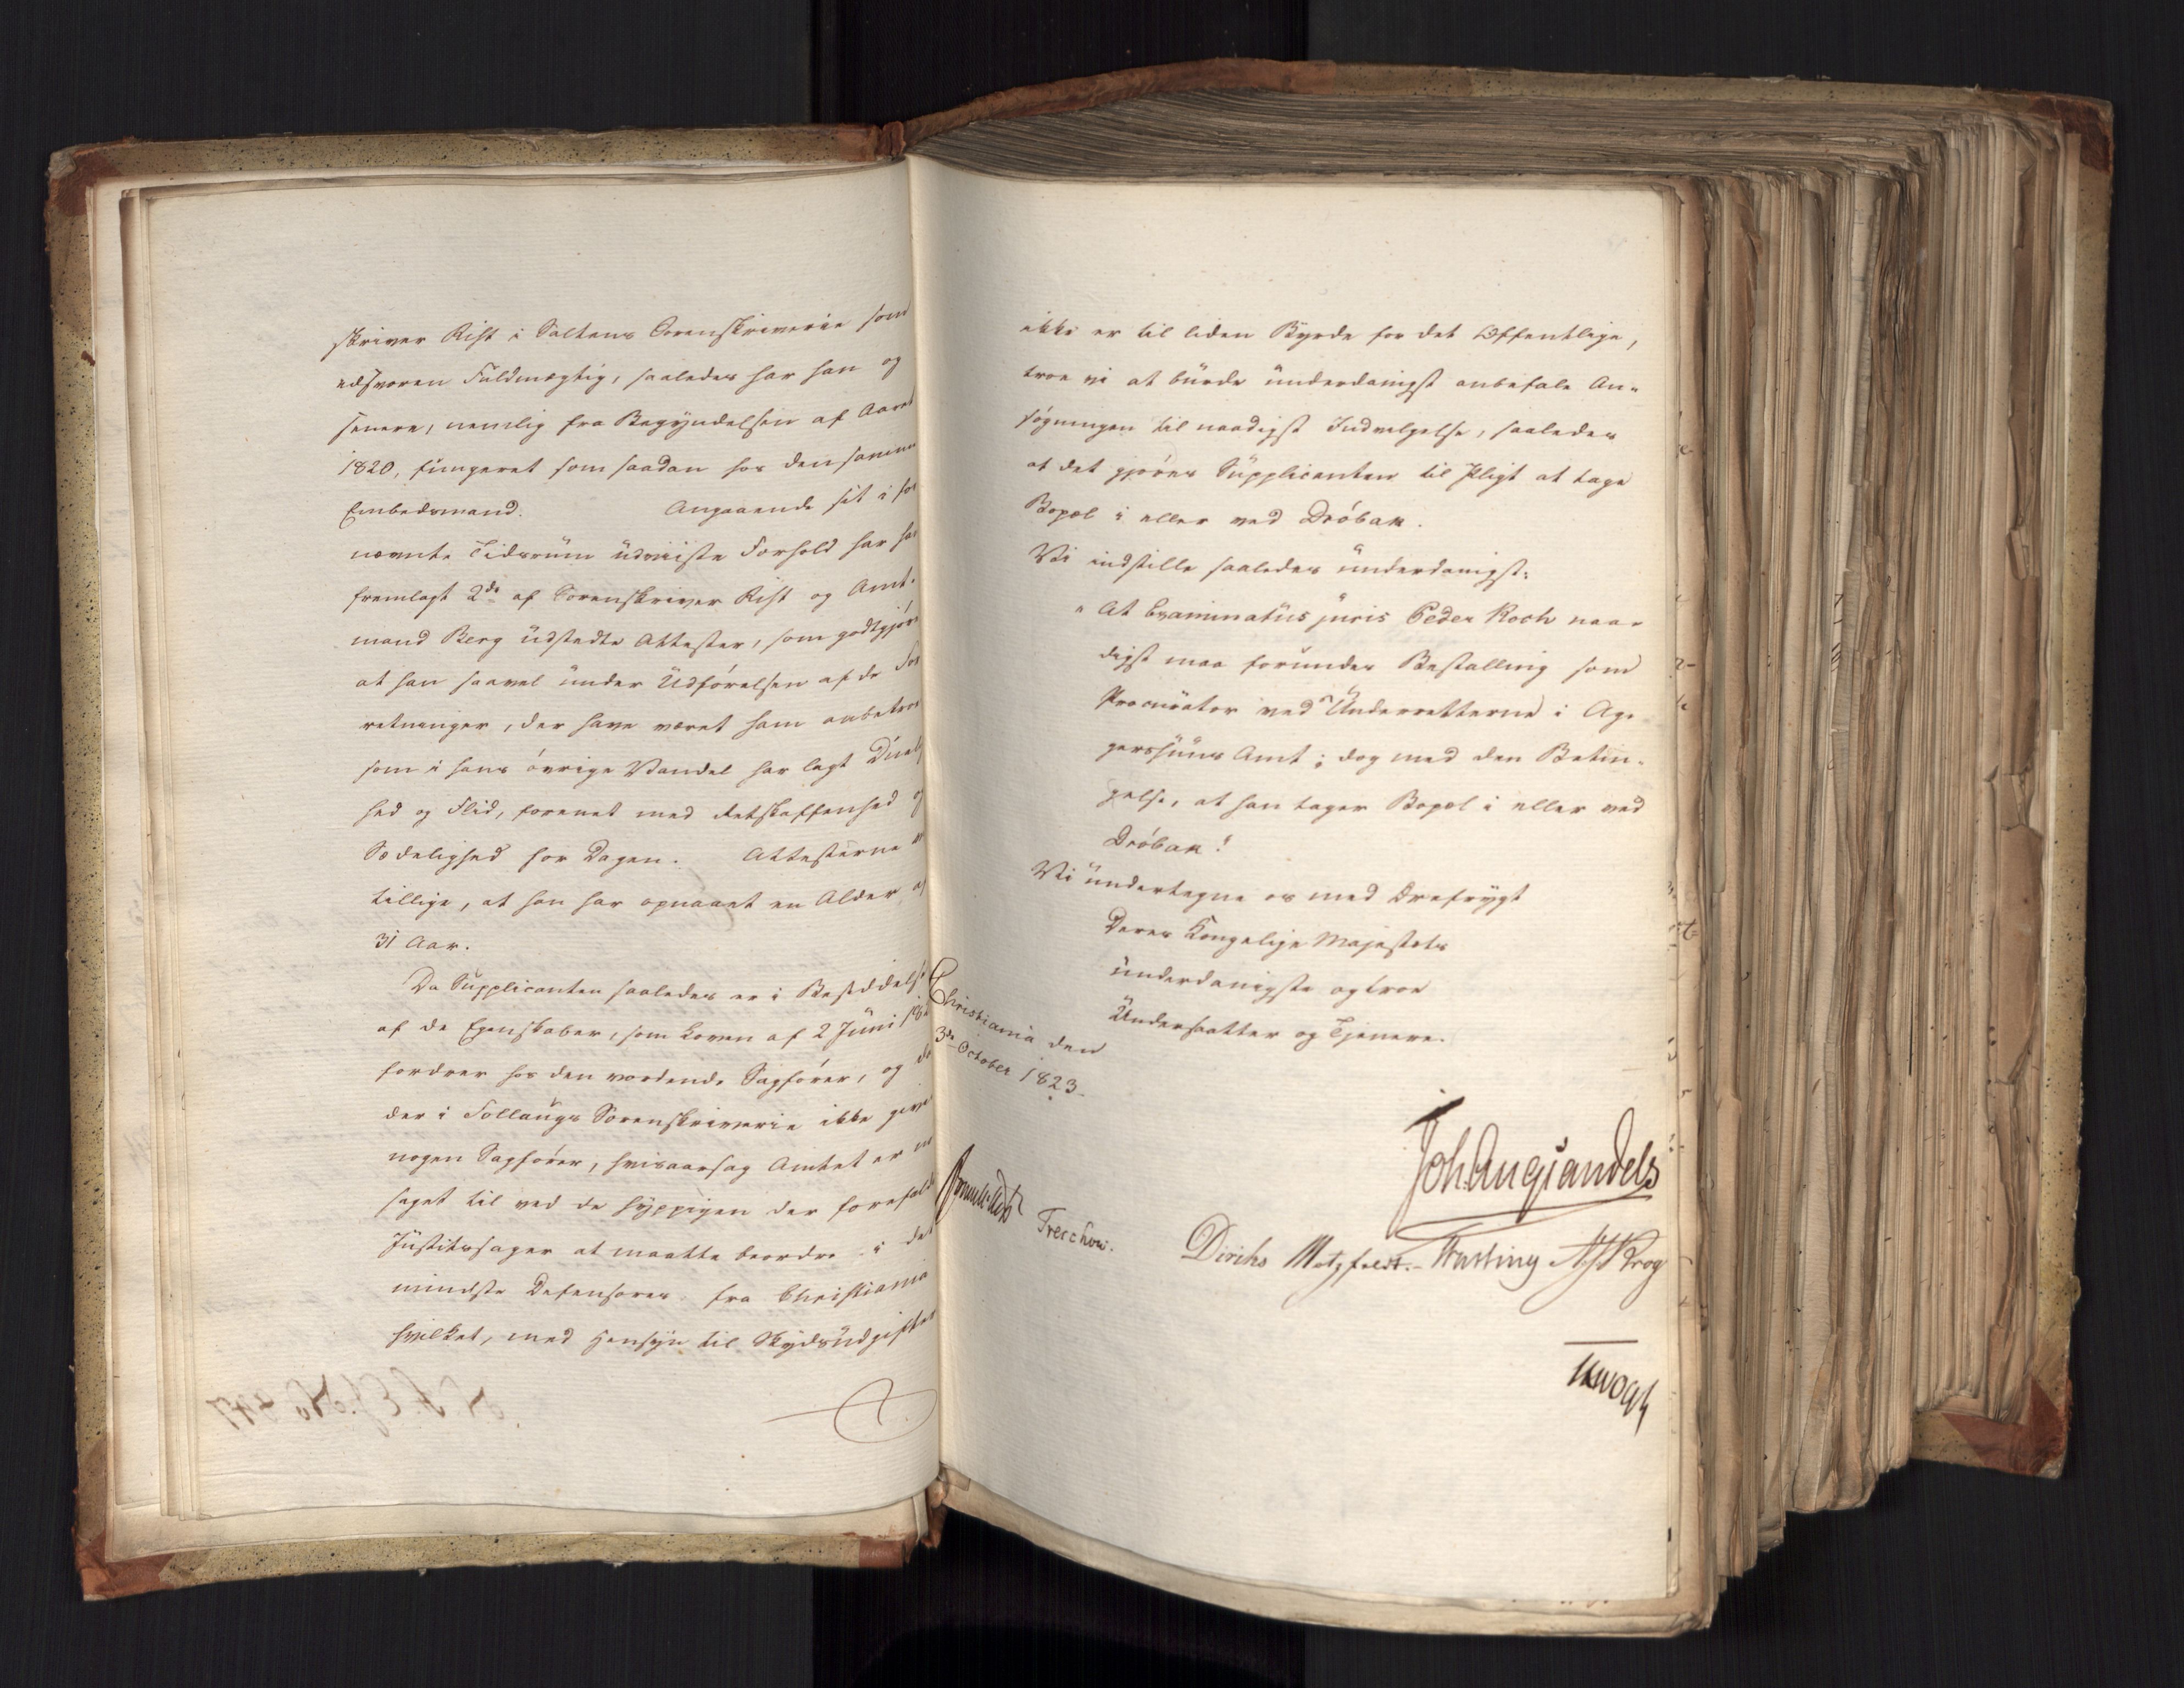 skriver Rist i Saltens Sorenskriverie som
edsvoren Fuldmægtig, saaledes har han og
senere, nemlig fra Begyndelsen af Aaret
1820, fungeret som saadan hos den samme
Embedsmand. Angaaende sit i for
nævnte Tidsrum udviiste Forhold har han
fremlagt 2de af Sorenskriver Rist og Amt-
mand Berg udstedte Attester, som godtgjør
at han saavel under Udførelsen af de For
retninger, der have været ham anbetroe
som i hans øvrige Vandel har lagt Duel
hed og Flid, forenet med Retskaffenhed og
Sædelighed for Dagen. Attesterne
tillige, at han har opnaaet en Alder af
31 Aar.
Da Supplicanten saaledes er i Besiddelse
af de Egenskaber, som Loven af 2 Juni
fordrer hos den vordende Sagfører, og da
der i Follougs Sorenskriverie ikke gives
nogen Sagfører, hvisaarsag Amtet er
saget til ved de hyppigen der forefald
Justitssager at maatte beordre i det
mindste Defensorer fra Christiania
hvilket, med Hensyn til Skydsudgifter
ikke er til liden Byrde for det Offentlige,
troe vi at burde underdanigst anbefale An-
søgningen til naadigst Indvilgelse, saaledes
at det gjøres Supplicanten til Pligt at tage
Bopæl i eller ved Drøbak.
Vi indstille saaledes underdanigst:
"At Examinatus juris Peder Koch naa-
digst maa forundes Bestalling som
Procurator ved Underretterne i Ag-
gershuus Amt; dog med den Betin-
gelse, at han tager Bopæl i eller ved
Drøbak!"
Vi undertegne os med Ærefrygt
Deres Kongelige Majestæts
underdanigste og troe
Undersaatter og Tjenere.
Christiania den
3de October 1823.
Joh Aug Sandels
Sommerhielm
Treschow.
Diriks Motzfeldt. Fasting Krog
Vogt